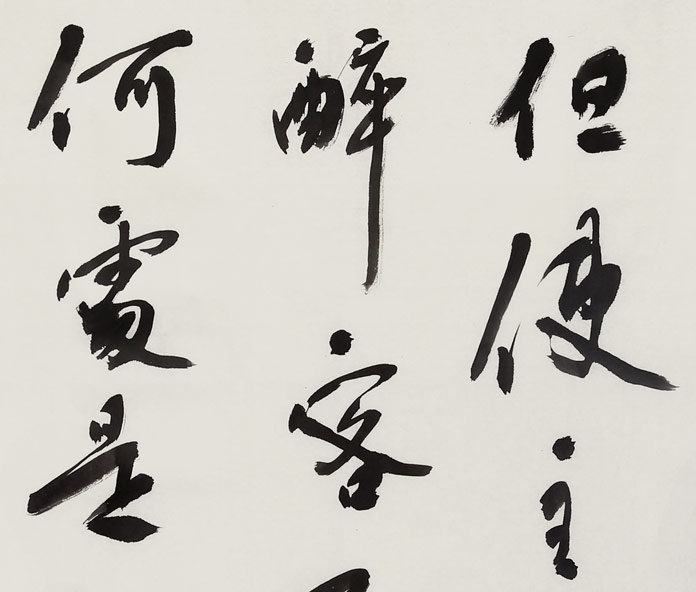 但使主
醉客
何處是